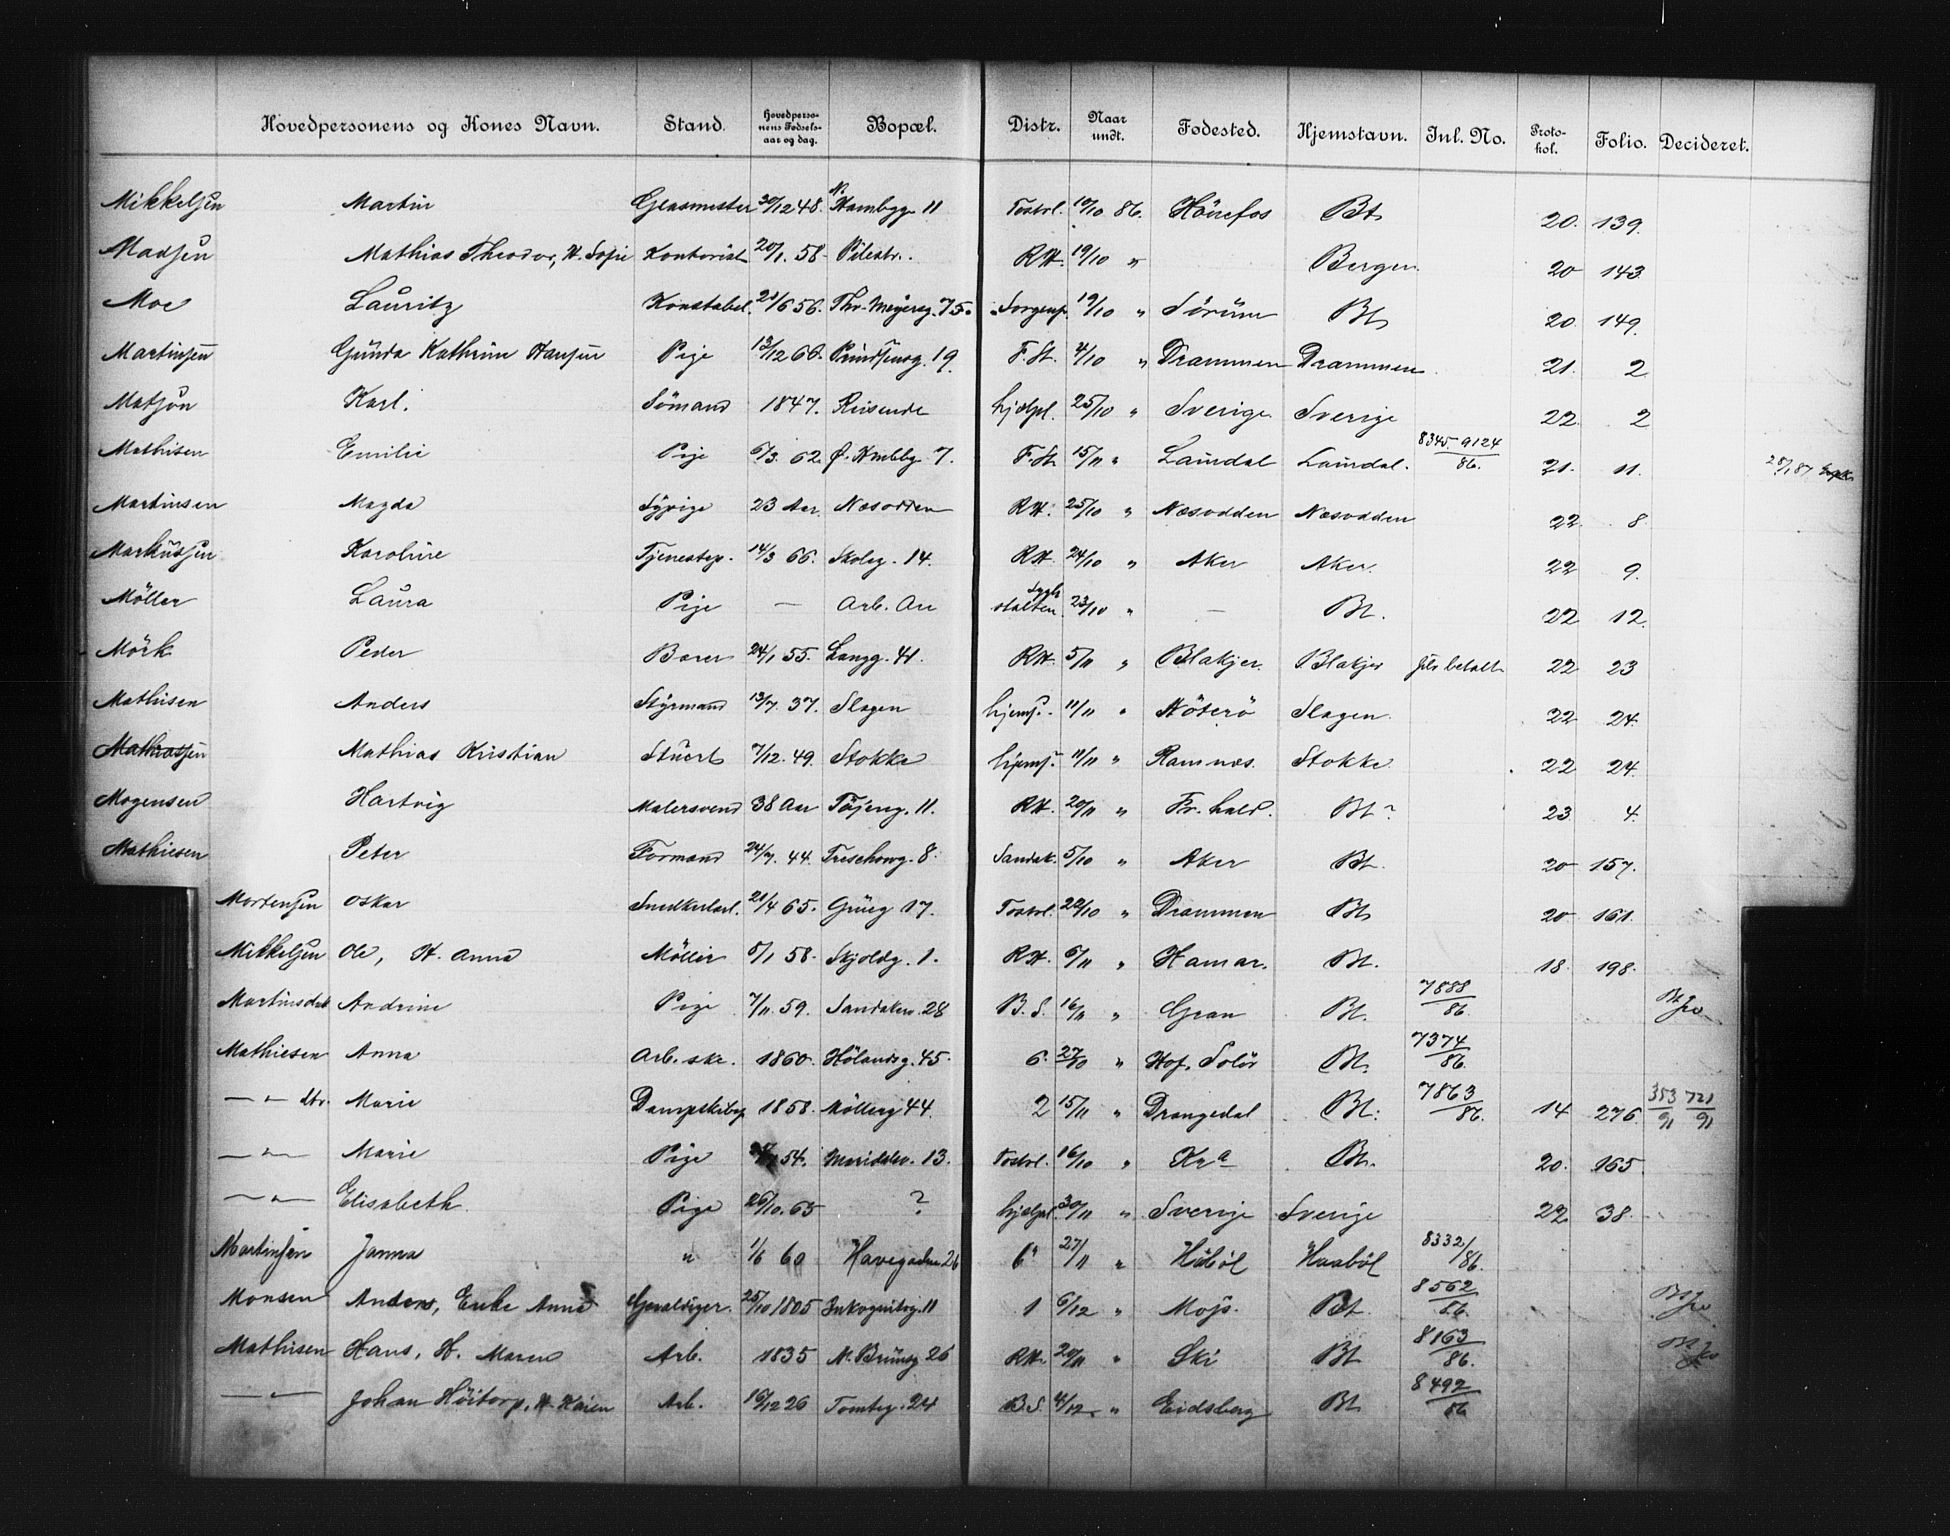 Hovedpersonens og Kones Navn. Stand. Hovedpersonens Fødselsaar og dag. Bopæl. Distr. Naar undt. Fødested. Hjemstavn. Inl. No. Protokol. Folio. Decideret.
Mikkelsen Martin Glasmester 30/12 48. N. Hambgg 11 10/10 86. Hönefos Bt 20. 139.
Madsen Mathias Theodor, H. Sofie Kontorist 20/1. 58 Pilestr. RH. 19/10 " Bergen 20 143
Moe Lauritz Konstabel. /6 56. Thv. Meyersg. 75. Sorgenf. 19/10 " Sörum Bt 20. 149.
Martinsen Gunda Kathrine Hansen Pige 13/12 66. Prindsensg. 19. F. St. 4/10 " Drammen Drammen 21. 2
Matson Karl. Sömand 1847. Reisende hjælpl. 25/10 " Sverige Sverige 22. 2
Mathisen Emilie Pige 6/3. 62. Ø. Hmbbg 7. F. St. 15/11 " Laurdal Laurdal. 8345-9124/86. 21. 11. 28/1 87
Martinsen Magda Sypige 23 Aar. Næsodden RH. 25/10 " Næsodden Næsodden 22. 8
Markussen Karoline Tjenestep. 14/3 66. Skoleg. 14. RH. 24/10 " Aker Aker. 22 9.
Möller Laura Pige — Arb. An stalten. 23/10 " — Bt. 22 12.
Mörk Peder Borer 24/1 55. Langg. 41. RH. 5/11 " Blakjer. Blakjer betalt 22 23
Mathisen Anders Styrmand 13/7. 37. Slagen hjemf. 11/11 " Nöterö Slagen. 22 24.
Mathiassen Mathias Kristian Stuert 7/12. 49. Stokke hjemf. 11/11 " Ramnæs. Stokke. 22 24.
Mogensen Hartvig Malersvend 38 Aar Töjeng. 11. RH. 20/11 " Fr. hald. Bt? 23 4.
Mathiesen Peter Formand 24/7. 44. Treschowg. 8. Sandak. 5/10 " Aker Bt. 20 157.
Mortensen Oskar Snedkerlærl. 21/4 65. Grüng 17. 22/10 " Drammen Bt 20 161.
Mikkelsen Ole, H. Anna Möller 8/1 58. Skjoldg. 1. RH. 6/11 " Hamar. Bt. 18. 198.
Martinsdat. Andrine Pige 7/11. 59. Sandakerv. 28 B. S. 16/11 " Gran Bt. 7888/86 Bt
Mathiesen Anna Arb. ske. 1860. Hölandsg. 45. 6. 27/10 " Hof, Solör Bt. 7374/86.
— " — dtr. Marie Dampskibsg 1858. Mölleg 44. 2 15/11 " Drangedal Bt. 7863/86. 14 276. 353/91 721/91
— " — Marie Pige 54. Maridalsv. 13. 16/10 " Kra Bt. 20. 165.
— " — Elisabeth. Pige 26/10. 65 ? hjælpl. 30/11 " Sverige Sverige 22 38.
Martinsen Janna " 1/6 60 Havegaden 26 6 27/11 " Håböl Haaböl 8332/86.
Monsen Anders, Enke Anna Gevaldiger. 25/10 1805 Inkognitog. 11 1 6/12 " Moss. Bt. 8562/86. Bt
Mathisen Hans, H. Maren Arb. 1835 N. Brunsg 26 RH. 20/11 " Ski Bt 8163/86. Bt
— " — Johan Höitorp, H. Karen Arb. 16/12 26 Tomteg. 24 B. S. 4/12 " Eidsberg Bt 8492/86